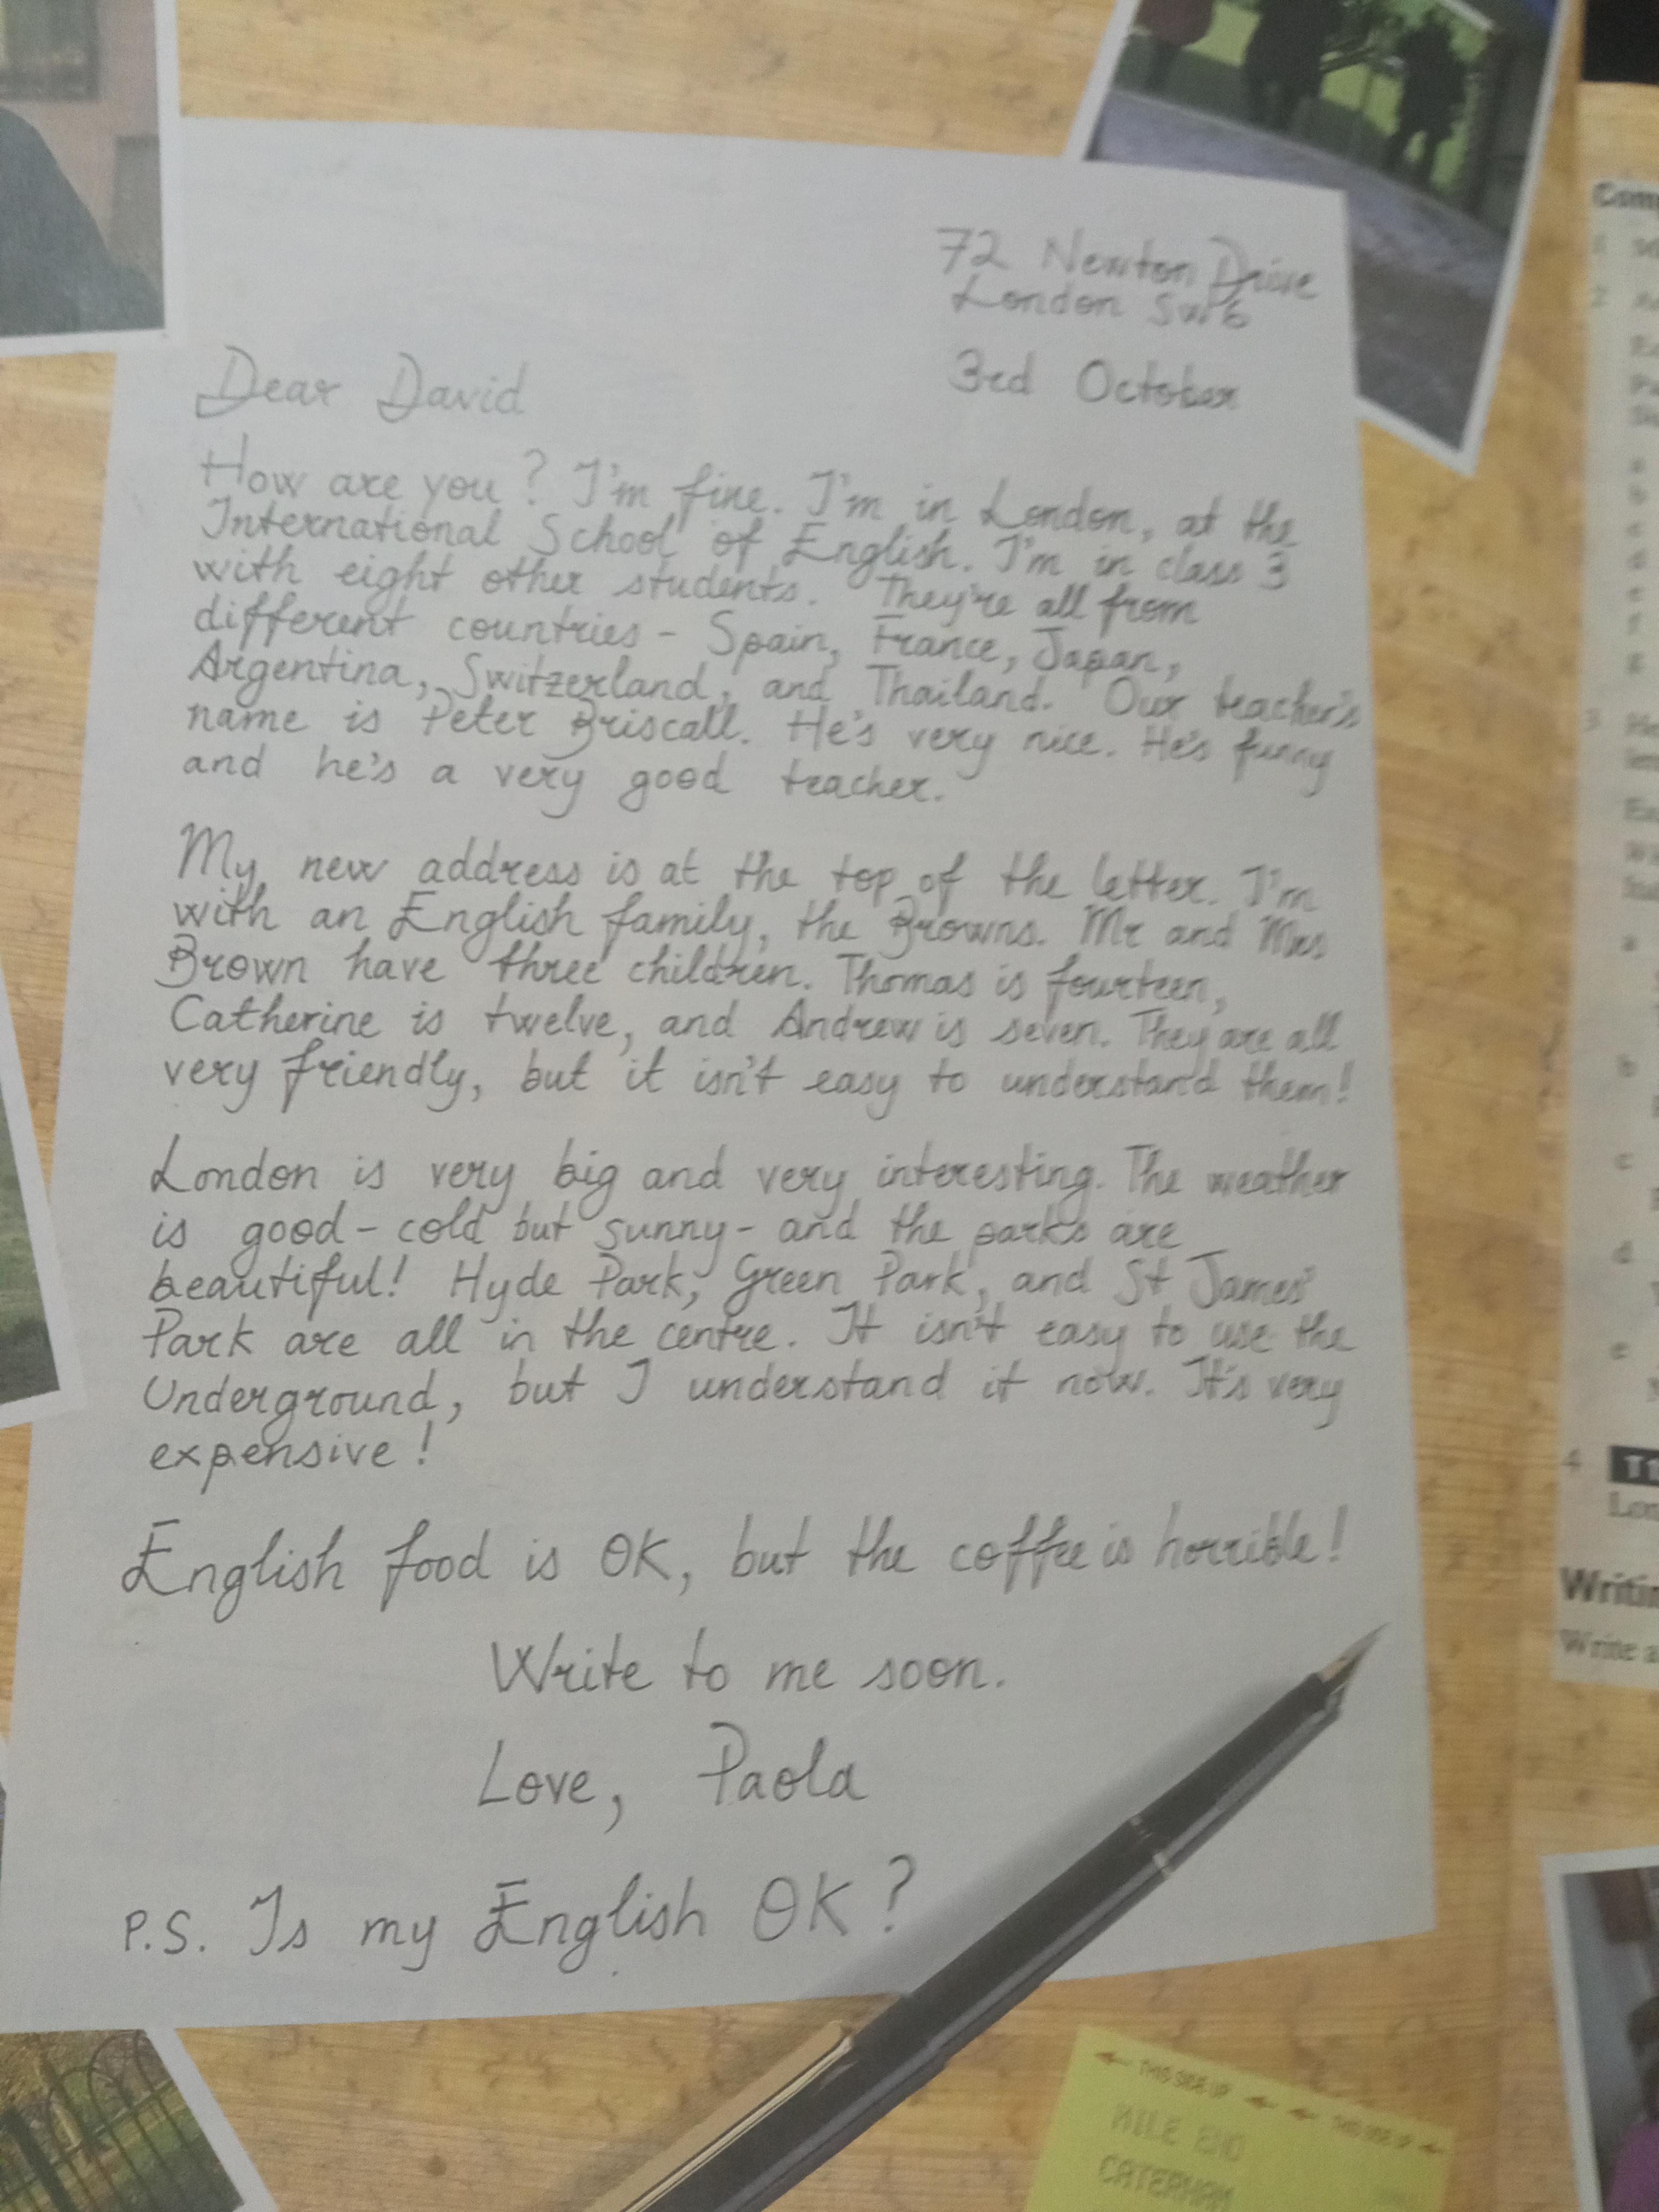 72 Newton Drive
London SW6
3rd October
Dear David
How are you? I'm fine. I'm in London, at the
International School of English. I'm in class 3
with eight other students. They're all from
different countries – Spain, France, Japan,
Argentina, Switzerland, and Thailand. Our teacher's
name is Peter Briscall. He's very nice. He's funny
and he's a very good teacher.
My new address is at the top of the letter. I'm
with an English family, the Browns. Mr and Mrs
Brown have three children. Thomas is fourteen,
Catherine is twelve, and Andrew is seven. They are all
very friendly, but it isn't easy to understand them!
London is very big and very interesting. The weather
is good – cold but sunny – and the parks are
beautiful! Hyde Park, Green Park, and St James'
Park are all in the centre. It isn't easy to use the
Underground, but I understand it now. It's very
expensive!
English food is OK, but the coffee is horrible!
Write to me soon.
Love, Paola
P.S. Is my English OK?
THIS SIDE UP
Com
1
2
3
4 T1
Lon
Writin
Write a